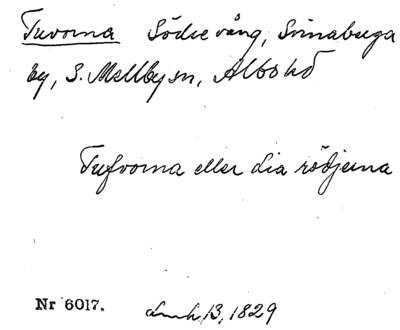 Tuvorna Södre vång, Svinaberga
by, S. Mellby sn, Albo hd
Tufvorna eller Lia rödjerna
Nr 6017. Lmh. 13, 1829